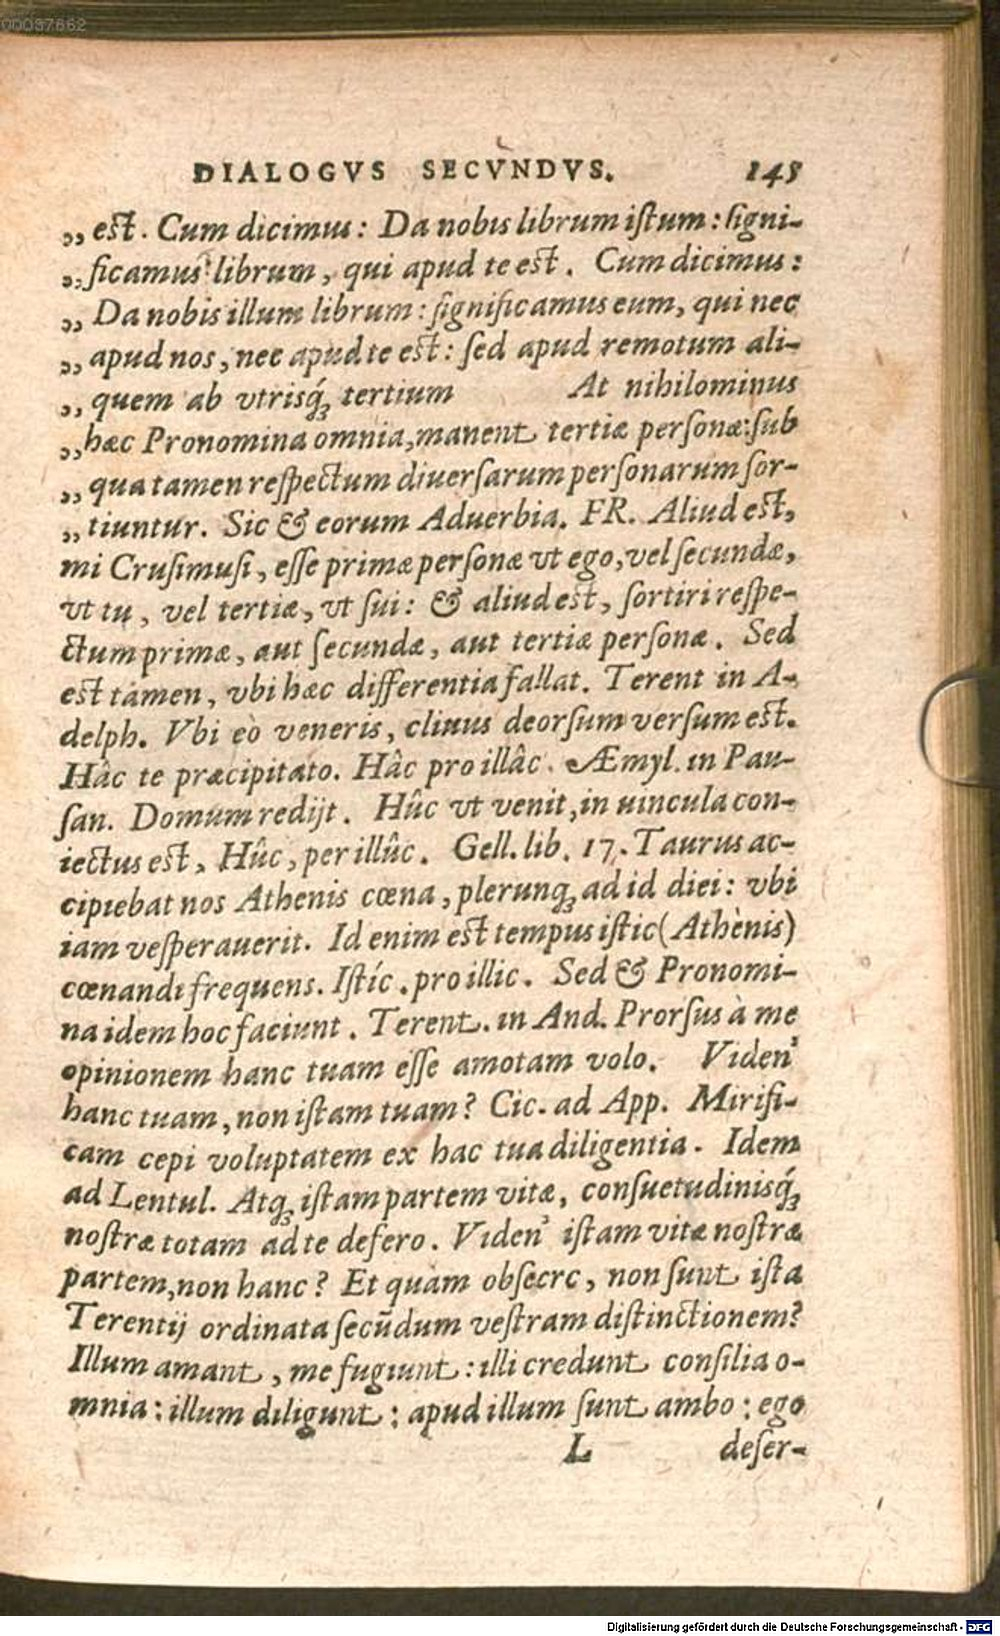 00037662
DIALOGVS SECVNDVS. 145
„ est. Cum dicimus: Da nobis librum iſtum: ſigni-
„ ficamus librum, qui apud te est. Cum dicimus:
„ Da nobis illum librum: ſignificamus eum, qui nec
„ apud nos, nec apud te est: ſed apud remotum ali-
„ quem ab vtrisq́; tertium At nihilominus
„ hæc Pronomina omnia, manent tertiæ perſonæ: ſub
„ qua tamen reſpectum diuerſarum perſonarum ſor-
„ tiuntur. Sic & eorum Aduerbia. FR. Aliud est,
mi Cruſimuſi, eſſe primæ perſonæ vt ego, vel ſecundæ,
vt tu, vel tertiæ, vt ſui: & aliud est, ſortiri reſpe-
ctum primæ, aut ſecundæ, aut tertiæ perſonæ. Sed
est tamen, vbi hæc differentia fallat. Terent in A-
delph. Vbi eò veneris, cliuus deorſum verſum est.
Hâc te præcipitato. Hâc pro illâc. Æmyl. in Pau-
ſan. Domum redijt. Hûc vt venit, in uincula con-
iectus est, Hûc, per illûc. Gell. lib. 17. Taurus ac-
cipiebat nos Athenis cœna, plerunq; ad id diei: vbi
iam veſperauerit. Id enim est tempus iſtic (Athènis)
cœnandi frequens. Iſtíc. pro illic. Sed & Pronomi-
na idem hoc faciunt. Terent. in And. Prorſus à me
opinionem hanc tuam eſſe amotam volo. Viden'
hanc tuam, non iſtam tuam? Cic. ad App. Mirifi-
cam cepi voluptatem ex hac tua diligentia. Idem
ad Lentul. Atq; iſtam partem vitæ, conſuetudinisq́;
noſtræ totam ad te defero. Viden' iſtam vitæ noſtræ
partem, non hanc? Et quàm obſecrc, non ſunt iſta
Terentij ordinata ſecũdum veſtram diſtinctionem?
Illum amant, me fugiunt: illi credunt conſilia o-
mnia: illum diligunt: apud illum ſunt ambo: ego
L deſer-
Digitalisierung gefördert durch die Deutsche Forschungsgemeinschaft - DFG